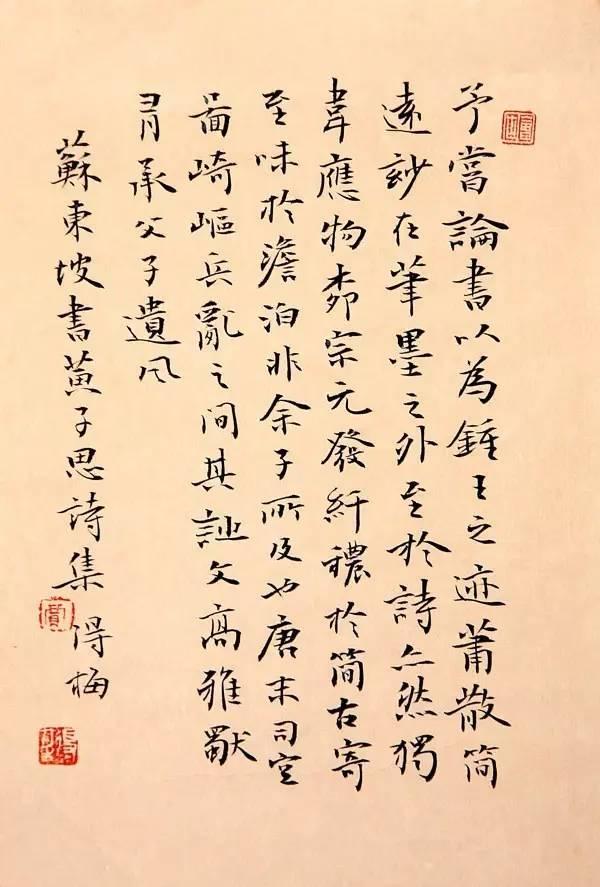 予嘗論書以為鍾王之迹蕭散簡
遠妙在筆墨之外至於詩亦然獨
韋應物柳宗元發纤穠於簡古寄
至味於澹泊非余子所及也唐末司空
圖崎嶇兵亂之间其文高雅猷
承父子遺風
蘇東坡書黄子思詩集 得梅